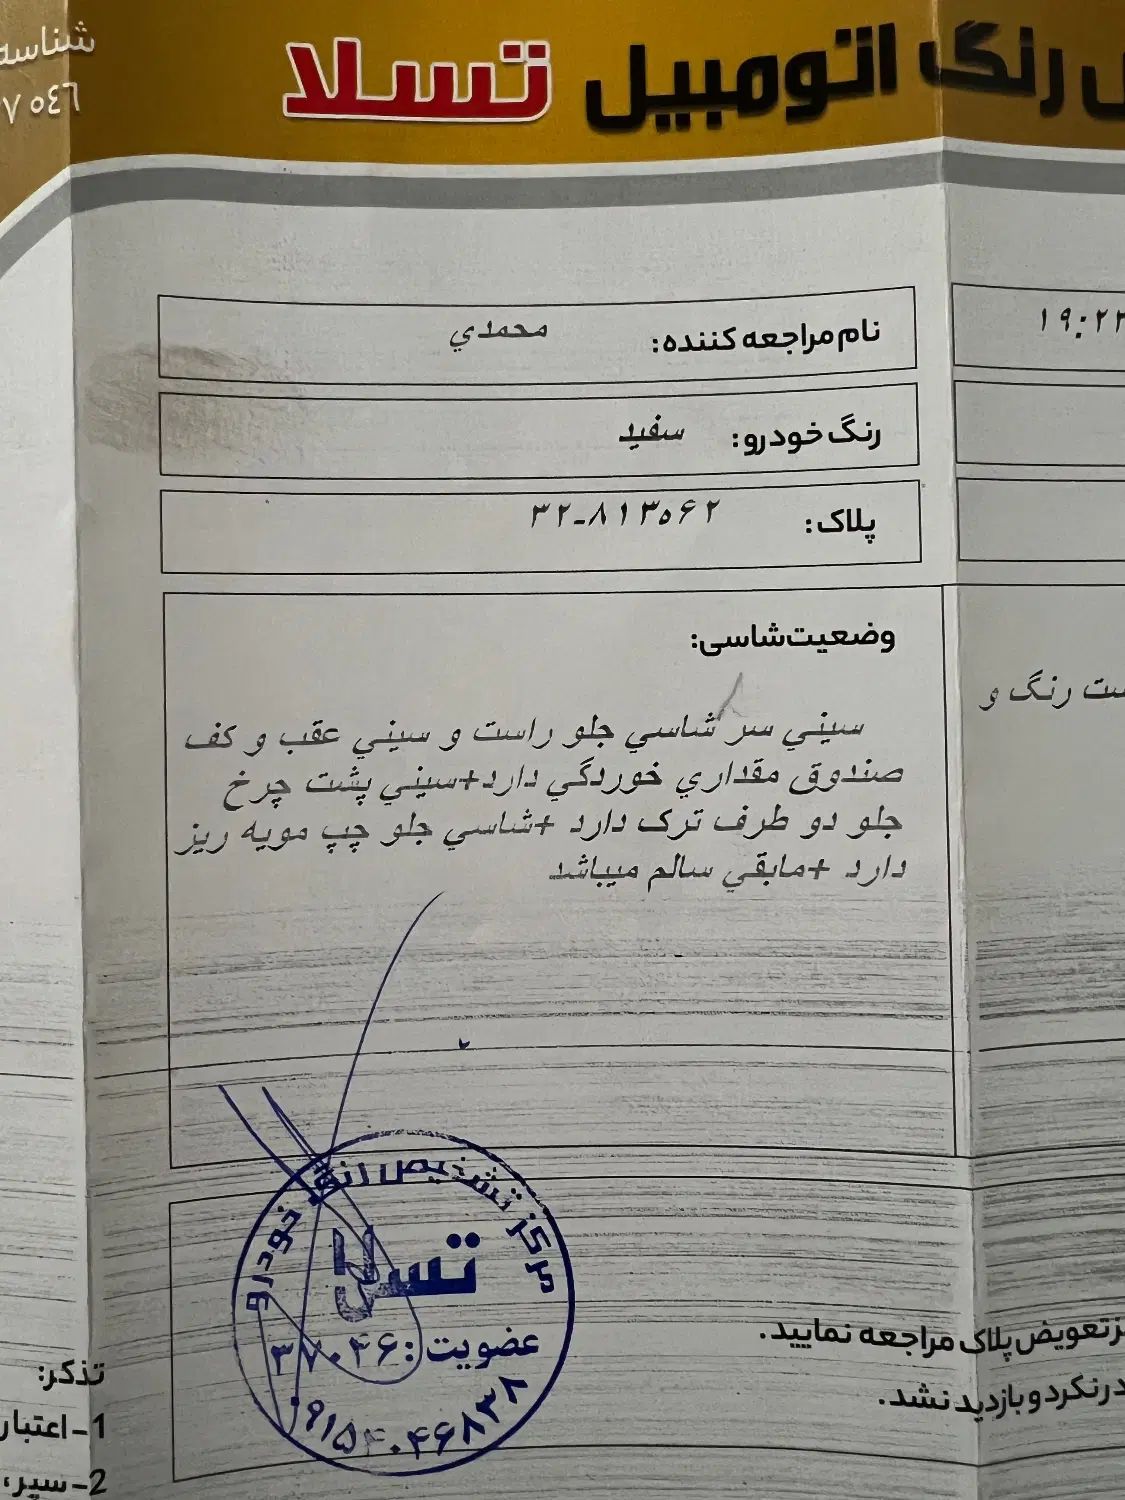 شناسه
رنگ اتومبیل تسلا
نام مراجعه کننده: محمدي
۱۹:۲۲
رنگ خودرو: سفید
پلاک: ۳۲-۸۱۳۵۶۲
وضعیت شاسی:
سيني سر شاسي جلو راست و سيني عقب و کف
صندوق مقداري خوردگي دارد+سيني پشت چرخ
جلو دو طرف ترک دارد +شاسي جلو چپ مويه ريز
دارد +مابقي سالم ميباشد
رنگ و
مرکز تشخیص رنگ خودرو
تسلا
عضویت: ۳۷۰۴۶
۰۹۱۵۴۰۴۶۸۳۸
تعویض پلاک مراجعه نمایید.
بازدید نشد.
تذکر:
1- اعتبار
2- سپر،